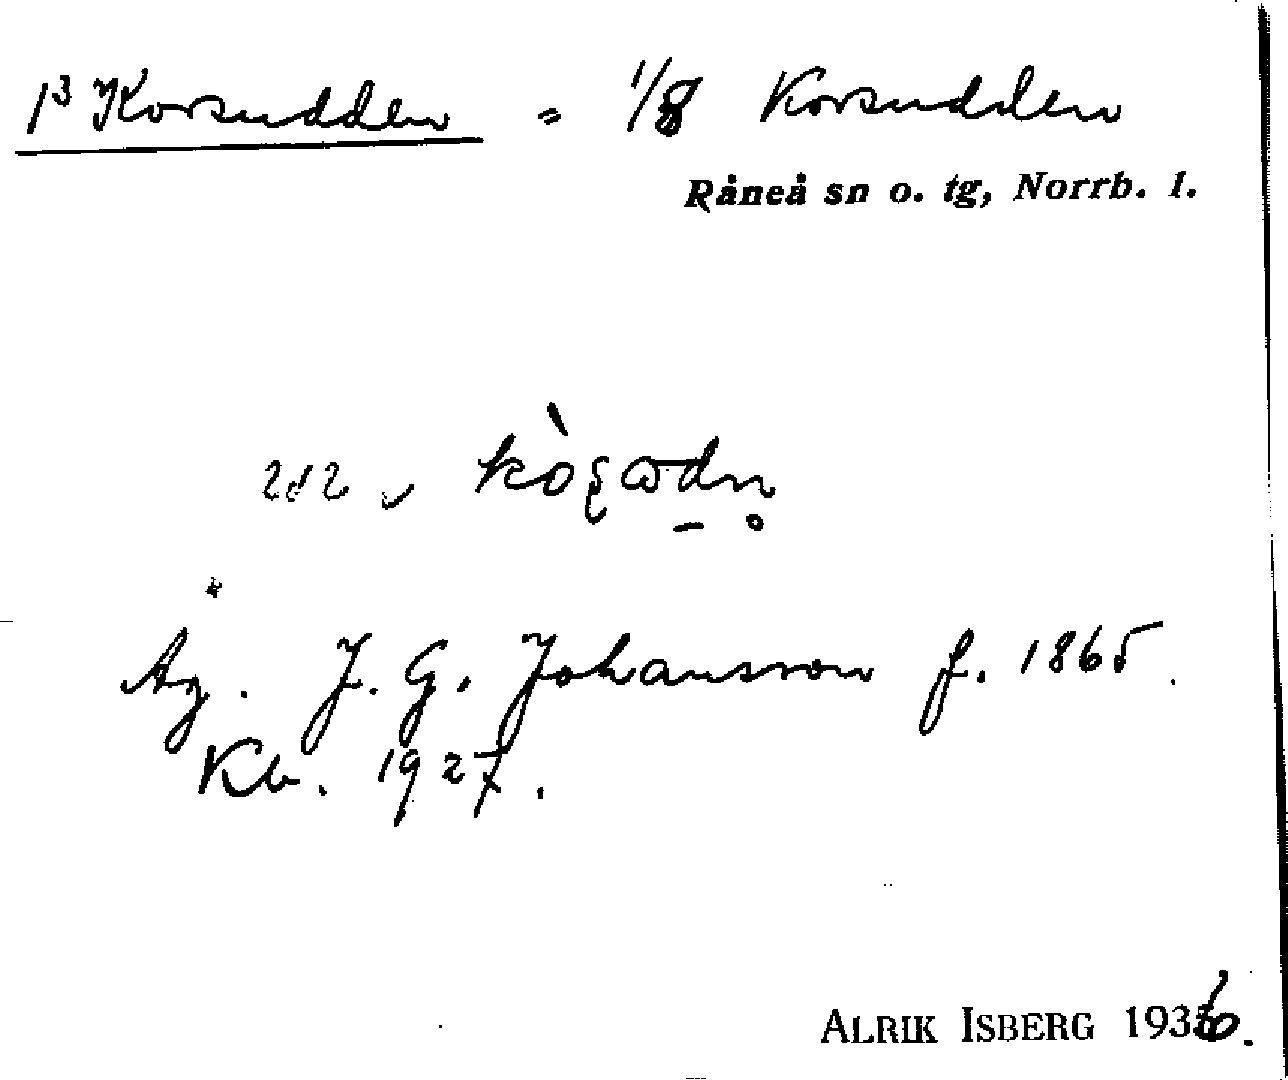 1³ Korsudden = 1/8 Korsudden
Råneå sn o. tg, Norrb. l.
Äg. J. G. Johansson f. 1865.
Kb. 1927.
ALRIK ISBERG 1936.